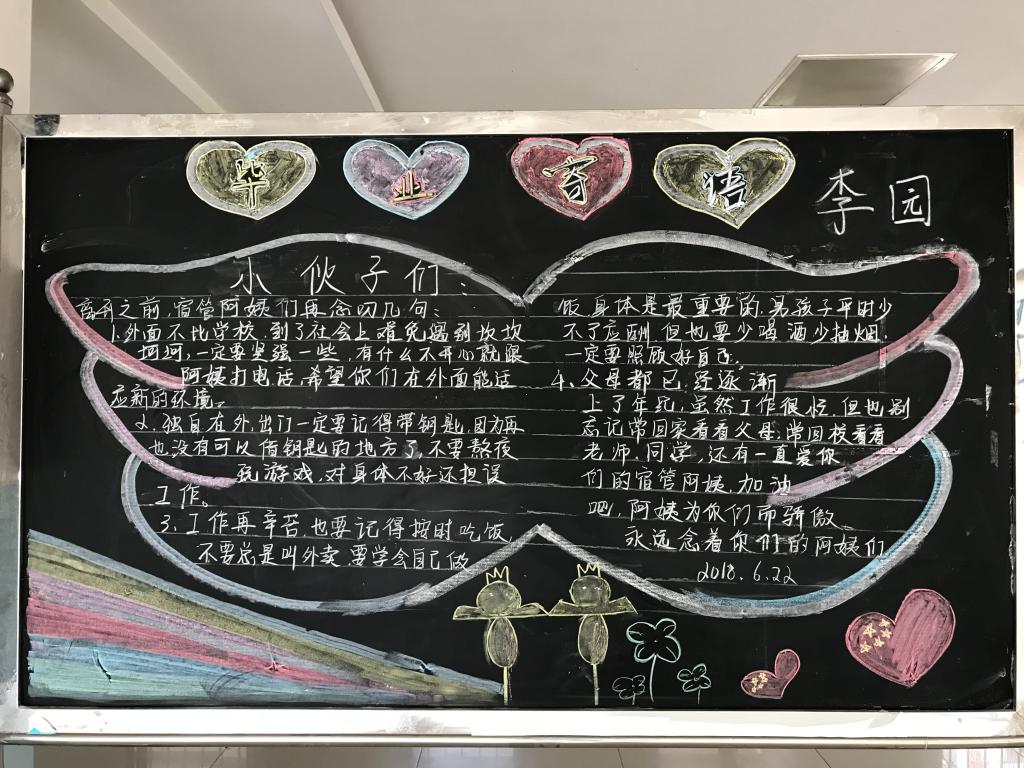 毕业寄语
李园
小伙子们:
离开之前,宿管阿姨们再念叨几句:
1.外面不比学校,到了社会上难免遇到坎坎
坷坷,一定要坚强一些,有什么不开心就跟
阿姨打电话,希望你们在外面能适
应新的环境。
2.独自在外,出门一定要记得带钥匙,因为再
也没有可以借钥匙的地方了,不要熬夜
玩游戏,对身体不好还担误
工作。
3.工作再辛苦,也要记得按时吃饭,
不要总是叫外卖,要学会自己做
饭,身体是最重要的,男孩子平时少
不了应酬,但也要少喝酒少抽烟,
一定要照顾好自己。
4、父母都已经逐渐
上了年纪,虽然工作很忙,但也别
忘记常回家看看父母,常回校看看
老师、同学,还有一直爱你
们的宿管阿姨,加油
吧,阿姨为你们而骄傲
永远念着你们的阿姨们
2018.6.22